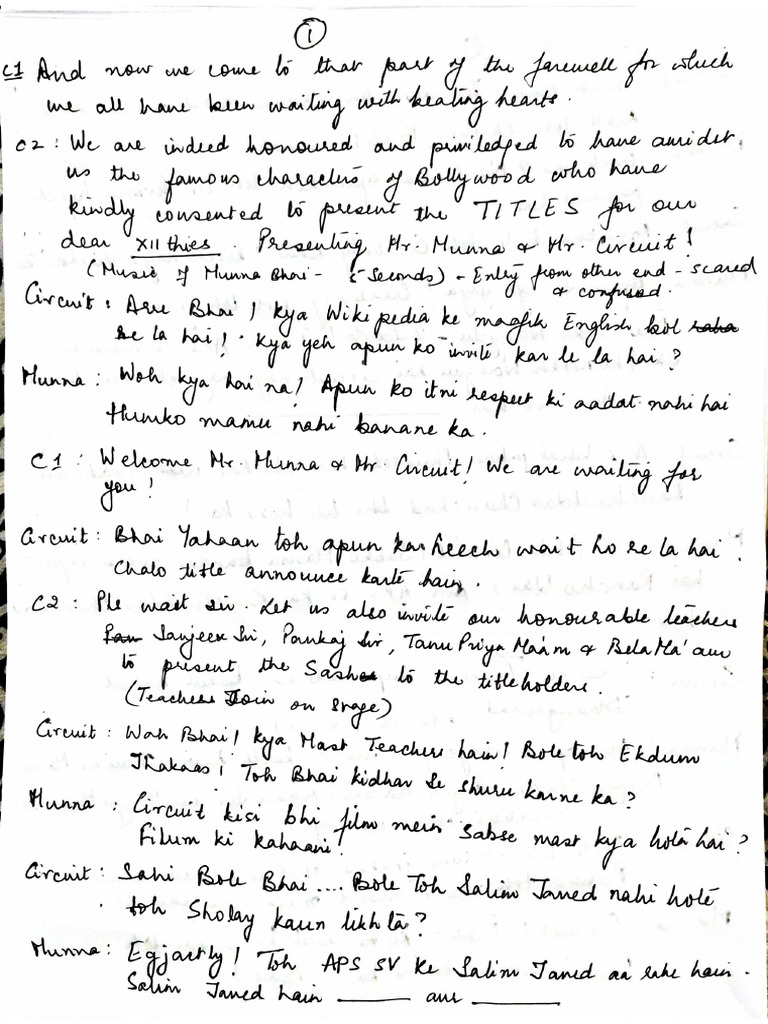 1
C1 And now we come to that part of the farewell for which
we all have been waiting with beating hearts.
C2 : We are indeed honoured and priviledged to have amidst
us the famous characters of Bollywood who have
kindly consented to present the TITLES for our
dear XII thies. Presenting Mr. Munna & Mr. Circuit!
(Music of Munna Bhai - 5 Seconds) - Entry from other end - scared
& confused.
Circuit : Are Bhai! Kya Wikipedia ke maafik English bol raha
re la hai! Kya yeh apun ko invite kar le la hai?
Munna : Woh kya hai na! Apun ko itni respect ki aadat nahi hai
Humko mamu nahi banane ka.
C1 : Welcome Mr. Munna & Mr. Circuit! We are waiting for
you!
Circuit : Bhai Yahaan toh apun ka heech wait ho re la hai.
Chalo title announce karte hain.
C2 : Ple wait sir. Let us also invite our honourable teachers
Sanjeev Sir, Pankaj Sir, Tanu Priya Ma'am & Bela Ma'am
to present the Sashes to the titleholders.
(Teachers Join on stage)
Circuit : Wah Bhai! Kya Mast Teachers hain! Bole toh Ekdum
Jhakaas! Toh Bhai kidhar se shuru karne ka?
Munna : Circuit kisi bhi film mein sabse mast kya hota hai?
Filum ki kahaani!
Circuit : Sahi Bole Bhai .... Bole Toh Salim Javed nahi hote
toh Sholay kaun likhta?
Munna : Egjactly! Toh APS SV ke Salim Javed aa rahe hain.
Salim Javed hain ______ aur ______